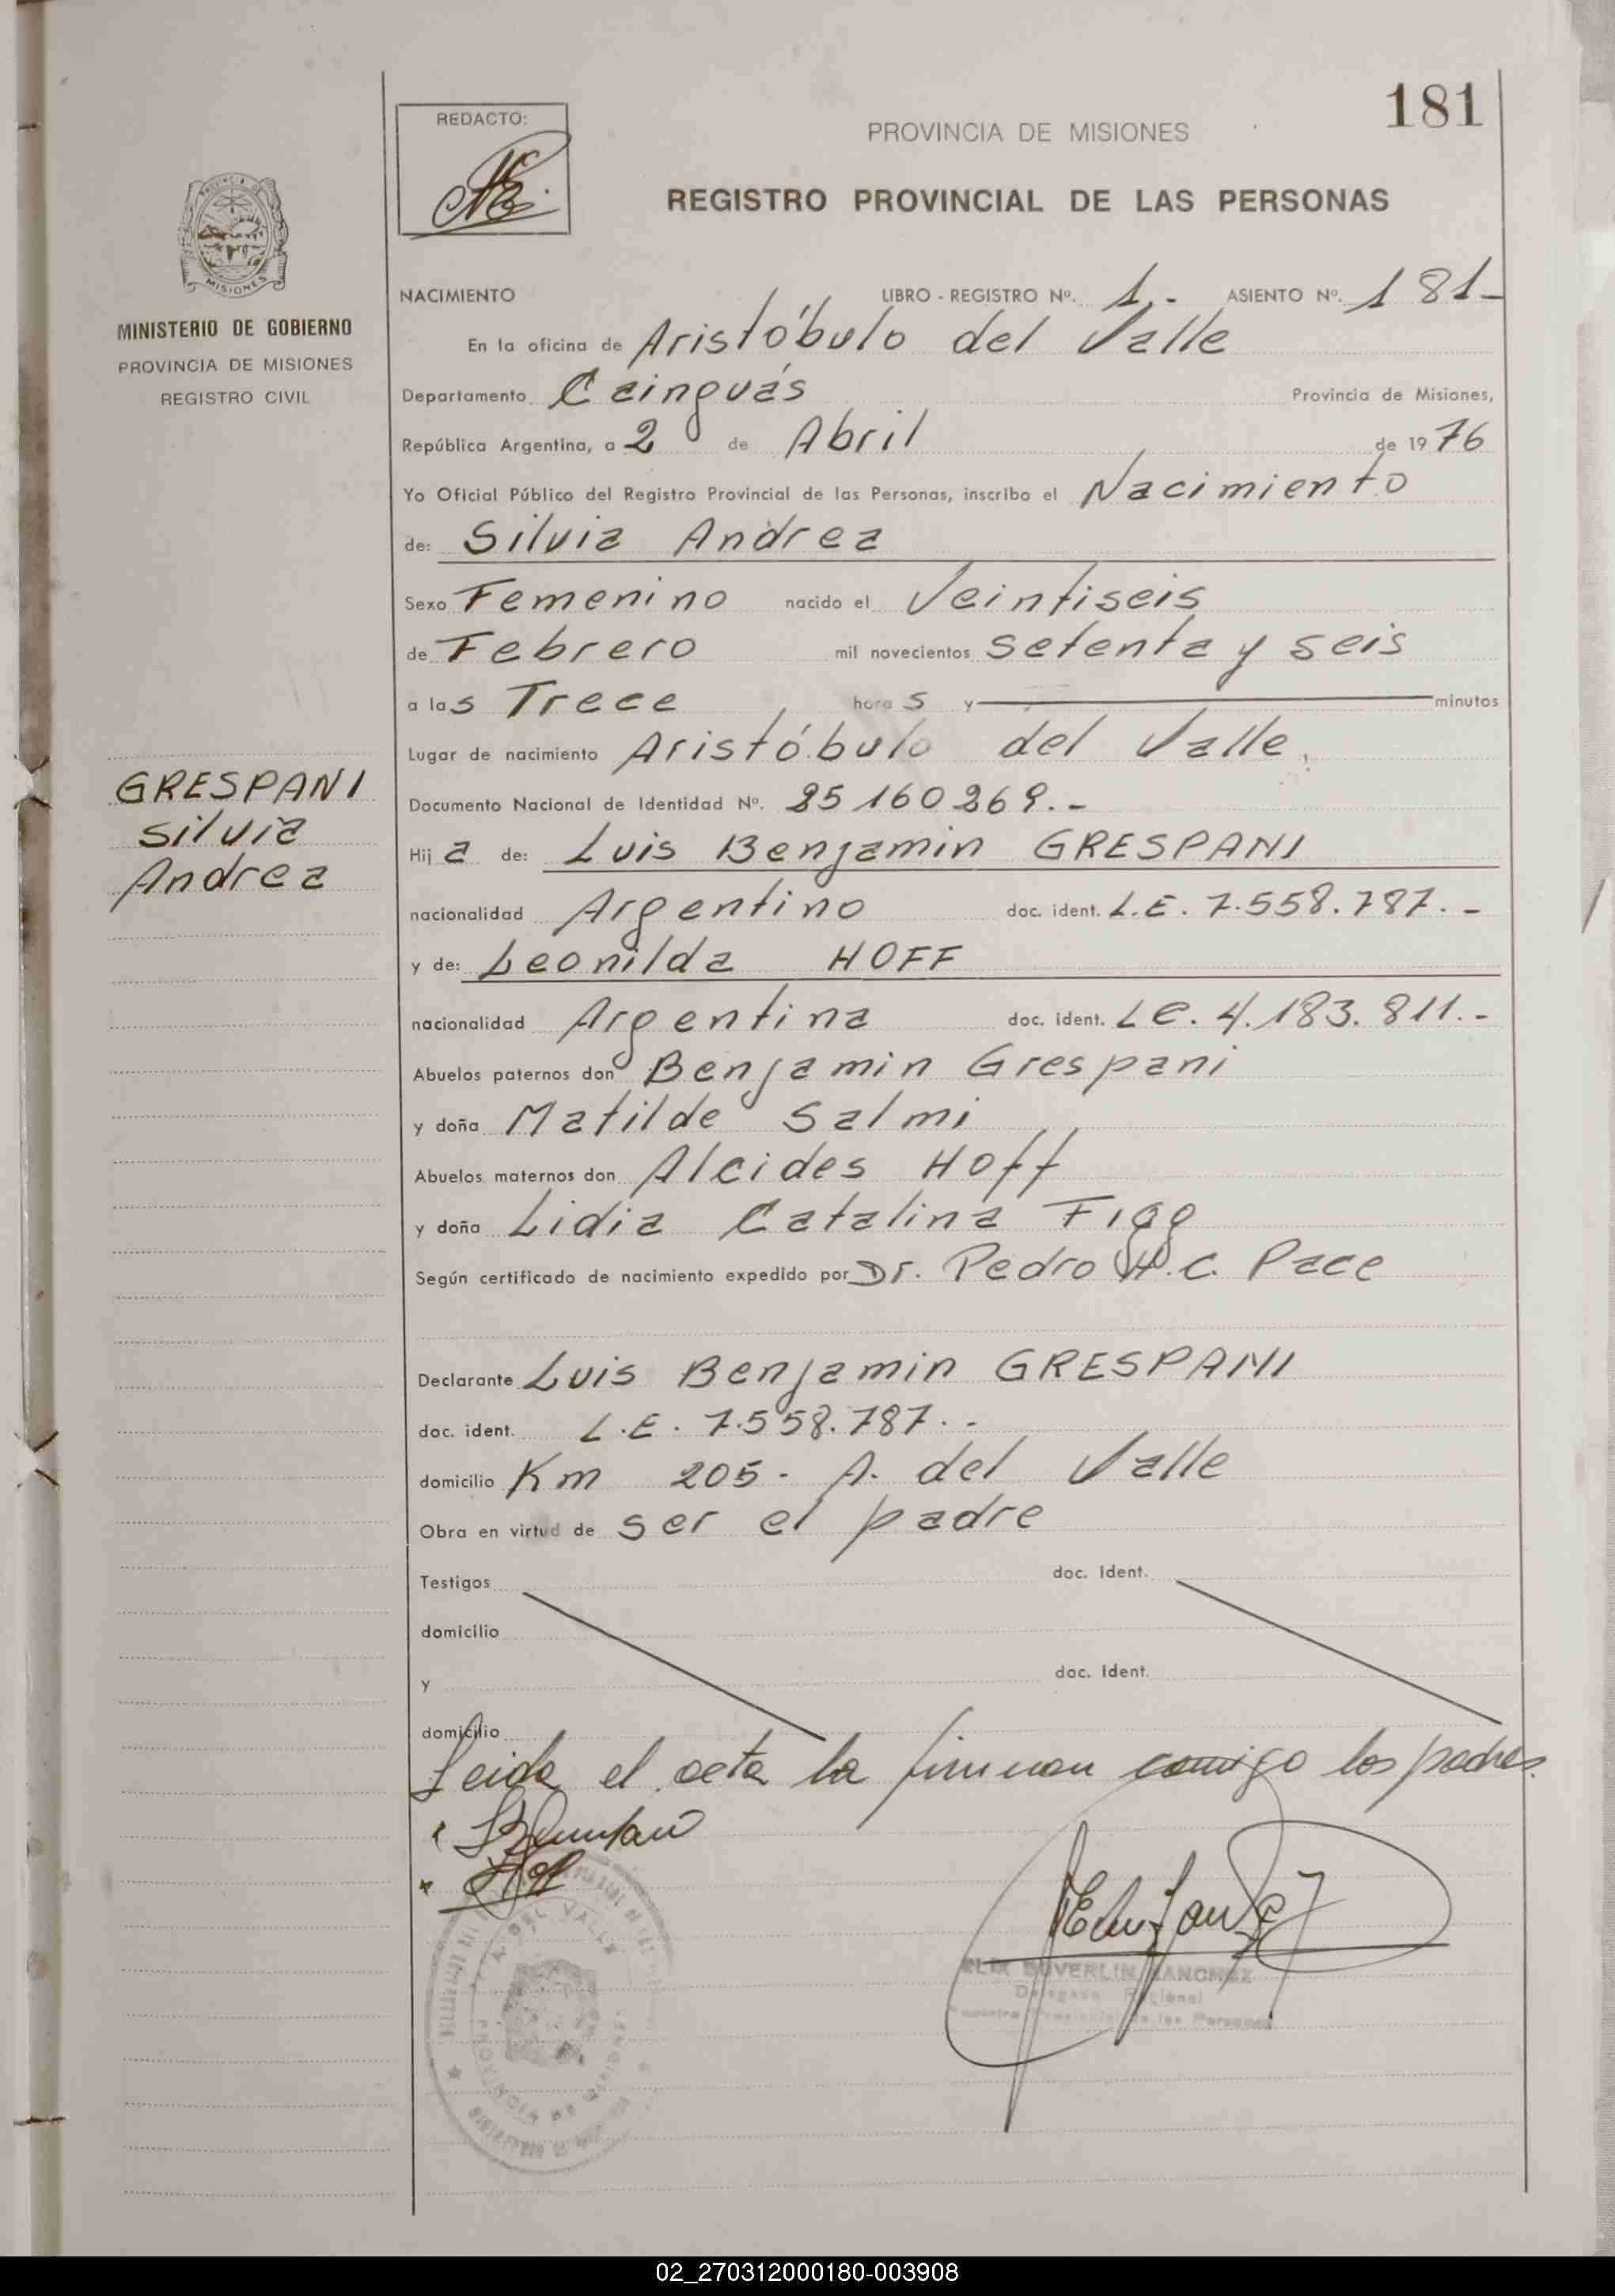 181
REDACTO:
PROVINCIA DE MISIONES
REGISTRO PROVINCIAL DE LAS PERSONAS
MISIONES
MINISTERIO DE GOBIERNO
PROVINCIA DE MISIONES
REGISTRO CIVIL
NACIMIENTO LIBRO - REGISTRO Nº. 1.- ASIENTO Nº. 181-
En la oficina de Aristóbulo del Valle
Departamento Cainguás Provincia de Misiones,
República Argentina, a 2 de Abril de 1976
Yo Oficial Público del Registro Provincial de las Personas, inscribo el Nacimiento
de: Silvia Andrea
Sexo Femenino nacido el Veintiseis
de Febrero mil novecientos setenta y seis
a las Trece horas y minutos
Lugar de nacimiento Aristóbulo del Valle.
GRESPANI
Silvia
Andrea
Documento Nacional de Identidad Nº. 25160269.-
Hija de: Luis Benjamin GRESPANI
nacionalidad Argentino doc. ident. L.E. 7.558.787.-
y de: Leonilda HOFF
nacionalidad Argentina doc. ident. LC. 4.183.811.-
Abuelos paternos don Benjamin Grespani
y doña Matilde Salmi
Abuelos maternos don Alcides Hoff
y doña Lidia Catalina Figg
Según certificado de nacimiento expedido por Dr. Pedro H.C. Pace
Declarante Luis Benjamin GRESPANI
doc. ident. L.E. 7.558.787.-
domicilio Km 205- A. del Valle
Obra en virtud de ser el padre
Testigos doc. Ident.
domicilio
y doc. Ident.
domicilio
Leida el acta la firman comigo los padres.
A. DEL VALLE
PROVINCIA DE
SANCHEZ
Delegado Regional
Registro Provincial de las Personas
02_270312000180-003908